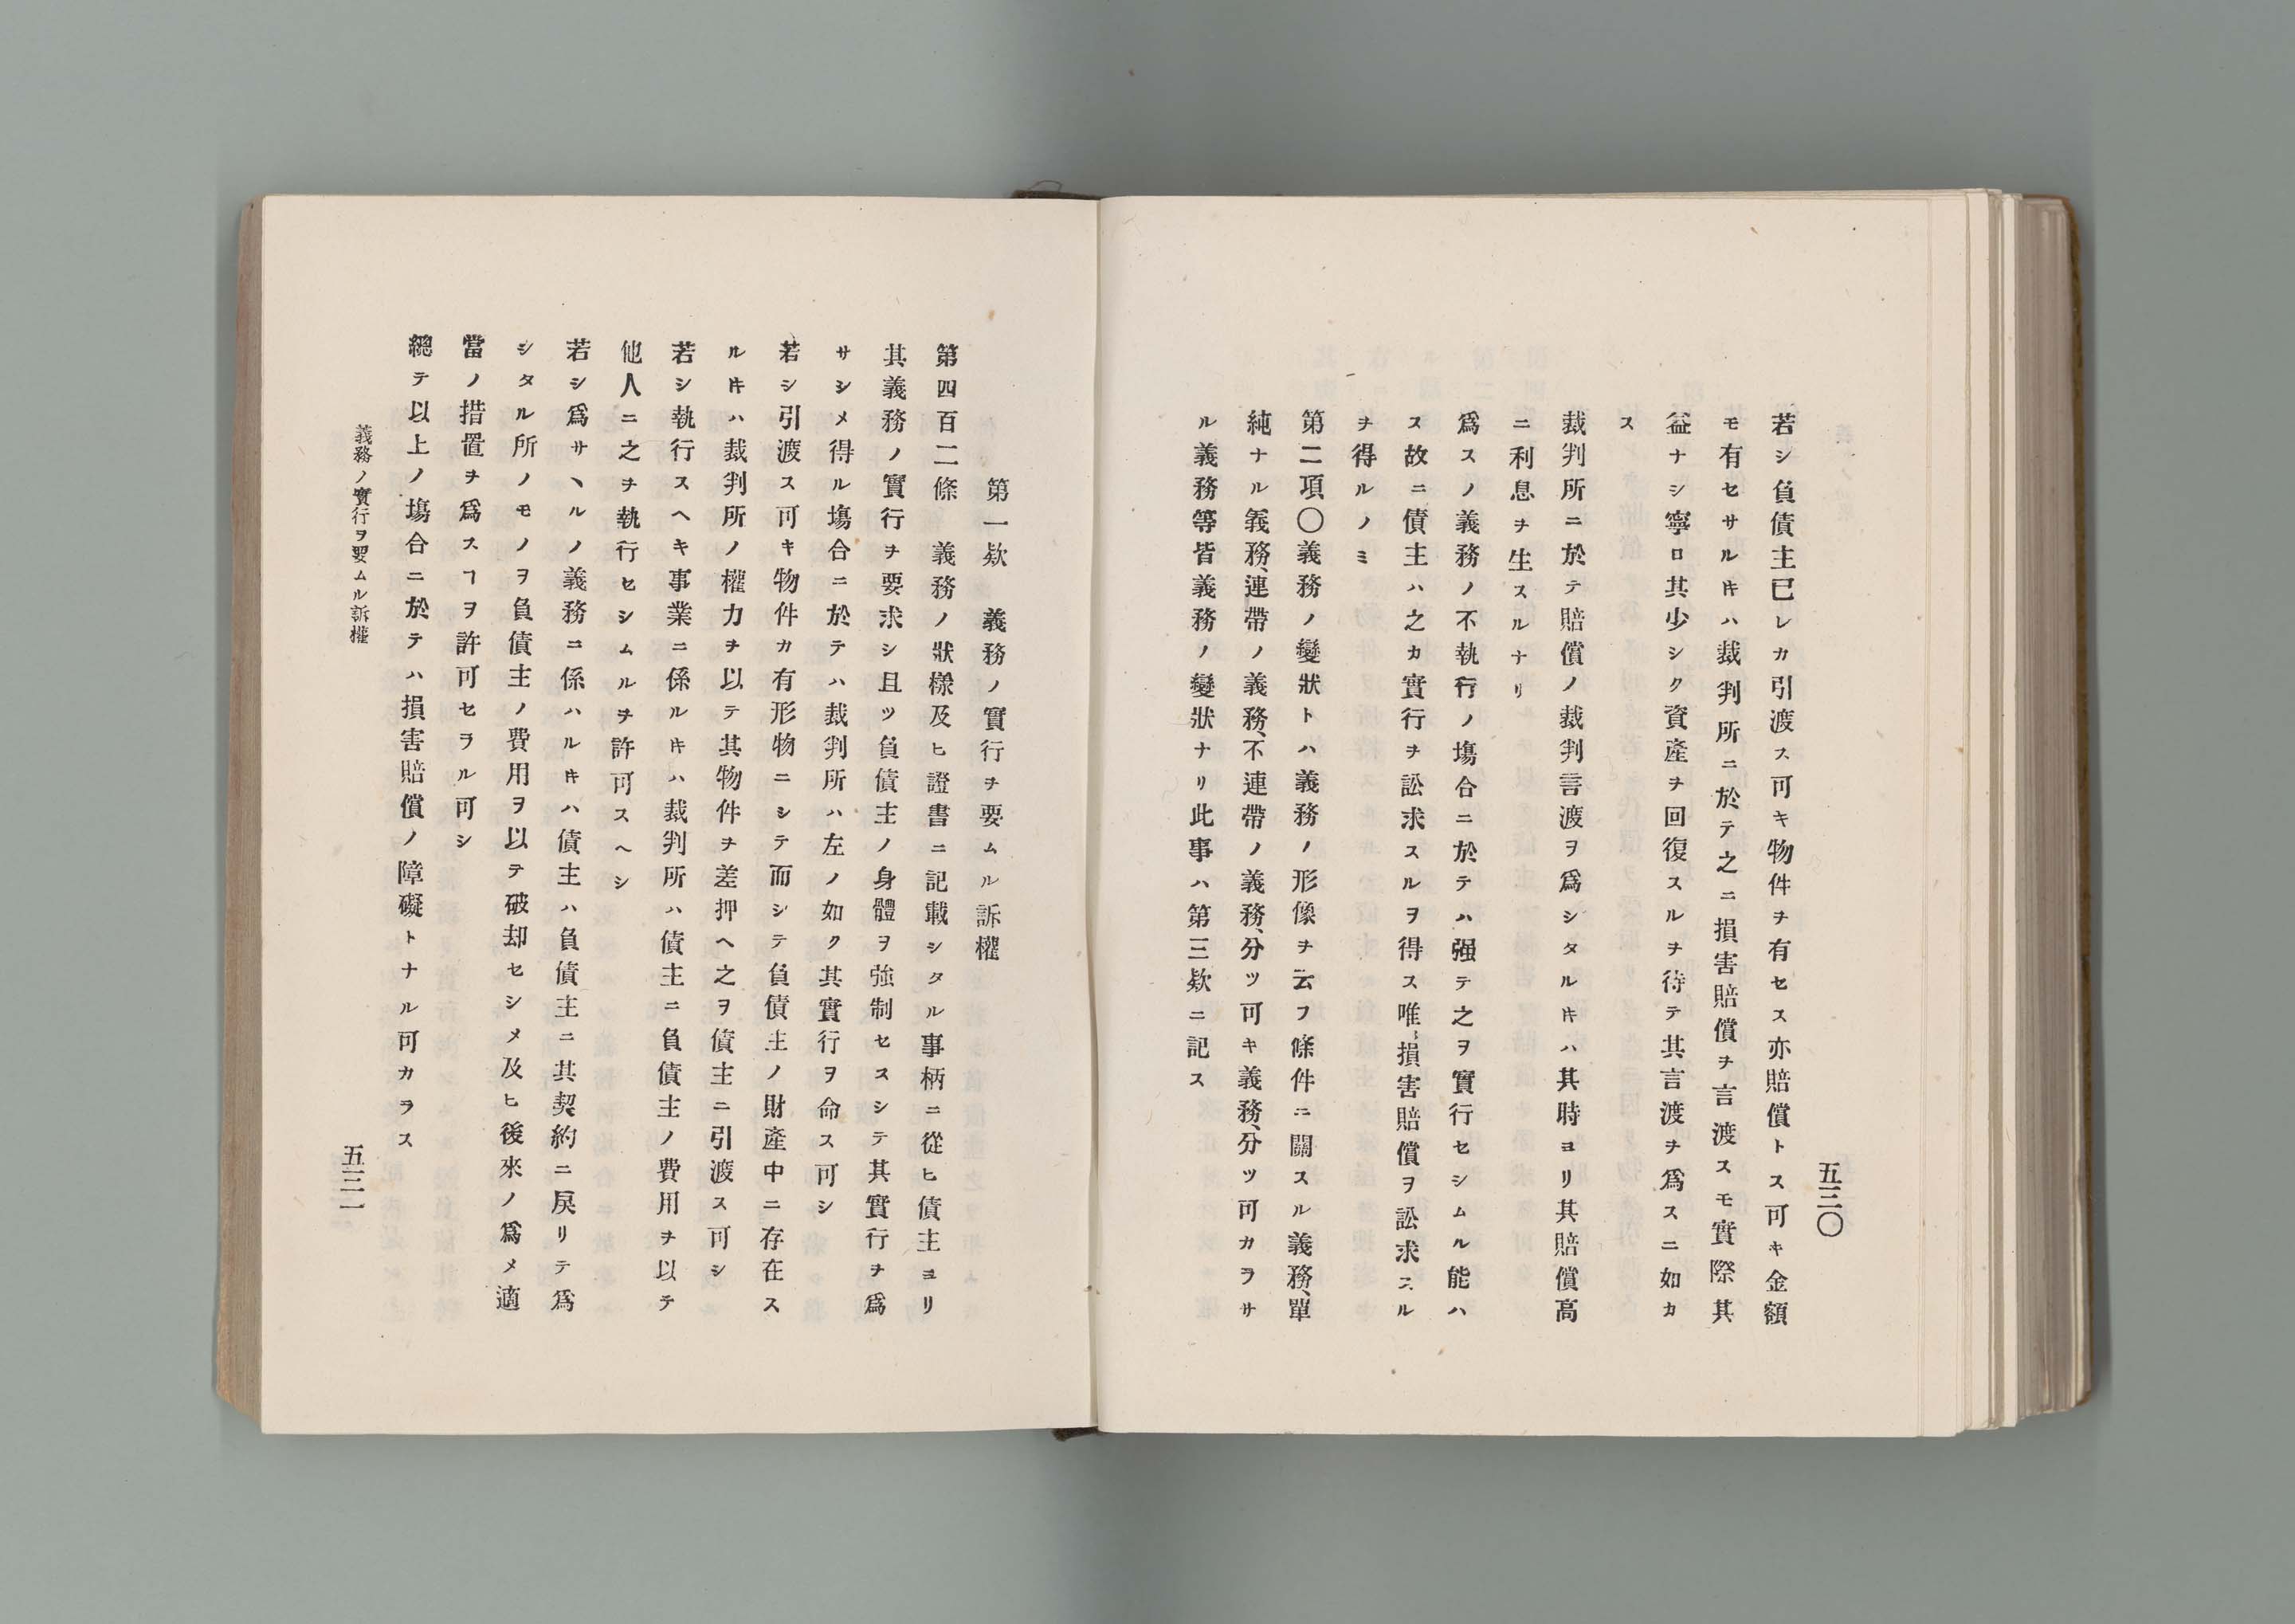 五三〇
若シ負債主已レカ引渡ス可キ物件ヲ有セス亦賠償トス可キ金額
モ有セサルキハ裁判所ニ於テ之ニ損害賠償ヲ言渡スモ實際其
益ナシ寧ロ其少シク資產ヲ回復スルヲ待テ其言渡ヲ爲スニ如カ
ス
裁判所ニ於テ賠償ノ裁判言渡ヲ爲シタルキハ其時ヨリ其賠償高
ニ利息ヲ生スルナリ
爲スノ義務ノ不執行ノ塲合ニ於テハ强テ之ヲ實行セシムル能ハ
ス故ニ債主ハ之カ實行ヲ訟求スルヲ得ス唯損害賠償ヲ訟求スル
ヲ得ルノミ
第二項〇義務ノ變狀トハ義務ノ形像ヲ云フ條件ニ關スル義務、單
純ナル義務、連帶ノ義務、不連帶ノ義務、分ツ可キ義務、分ツ可カラサ
ル義務等皆義務ノ變狀ナリ此事ハ第三欵ニ記ス
第一欵 義務ノ實行ヲ要ムル訴權
第四百二條 義務ノ狀樣及ヒ證書ニ記載シタル事柄ニ從ヒ債主ヨリ
其義務ノ實行ヲ要求シ且ツ負債主ノ身體ヲ強制セスシテ其實行ヲ爲
サシメ得ル塲合ニ於テハ裁判所ハ左ノ如ク其實行ヲ命ス可シ
若シ引渡ス可キ物件カ有形物ニシテ而シテ負債主ノ財產中ニ存在ス
ルキハ裁判所ノ權力ヲ以テ其物件ヲ差押ヘ之ヲ債主ニ引渡ス可シ
若シ執行スヘキ事業ニ係ルキハ裁判所ハ債主ニ負債主ノ費用ヲ以テ
他人ニ之ヲ執行セシムルヲ許可スヘシ
若シ爲サヽルノ義務ニ係ハルキハ債主ハ負債主ニ其契約ニ戾リテ爲
シタル所ノモノヲ負債主ノ費用ヲ以テ破却セシメ及ヒ後來ノ爲メ適
當ノ措置ヲ爲スヿヲ許可セラル可シ
總テ以上ノ塲合ニ於テハ損害賠償ノ障礙トナル可カラス
義務ノ實行ヲ要ムル訴權
五三一